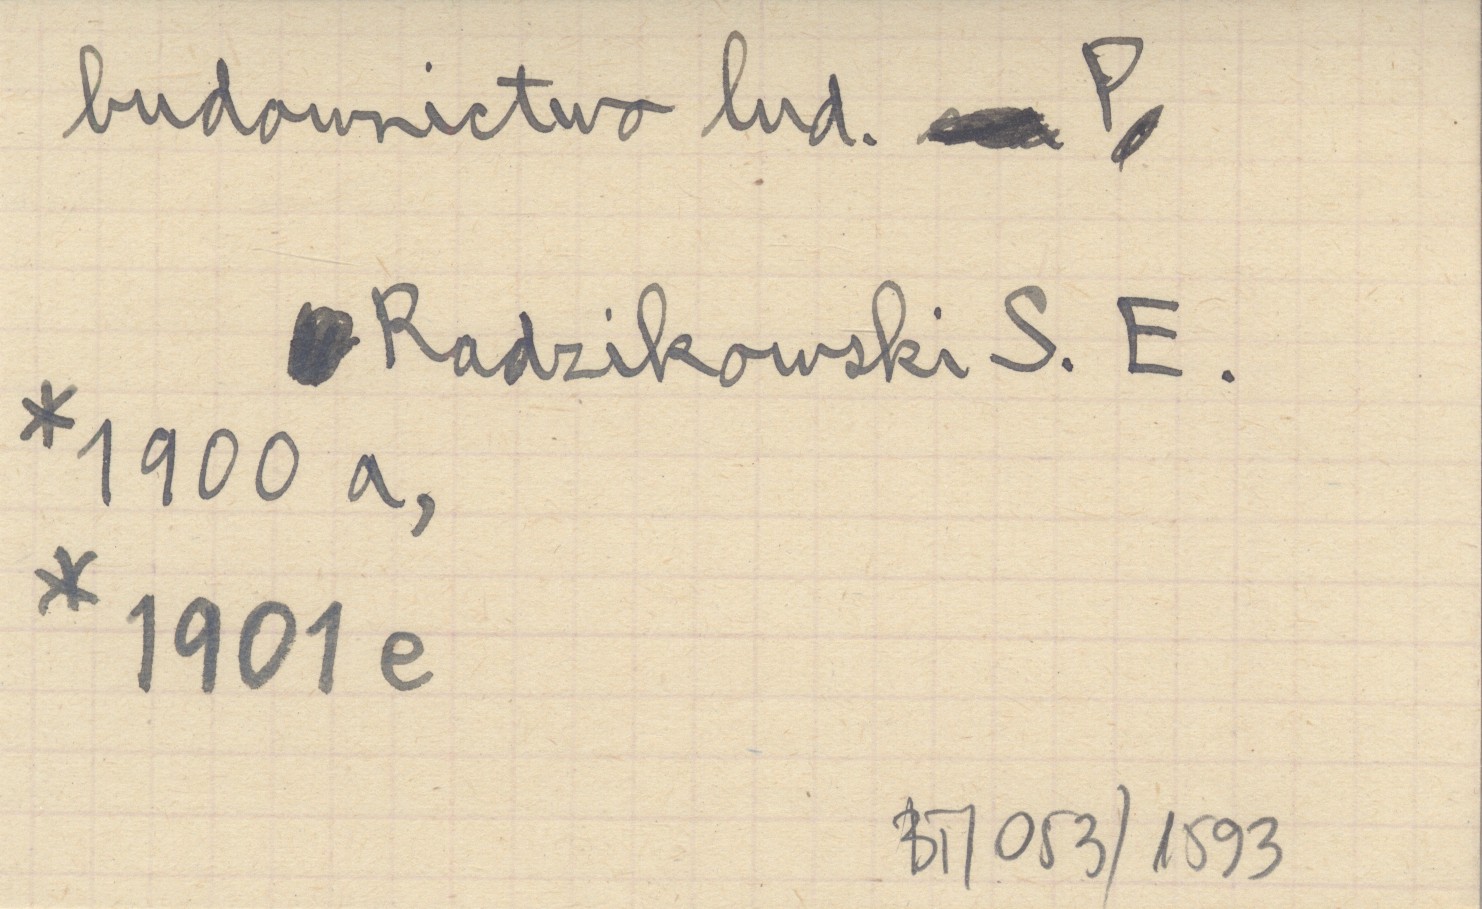 budownictwo lud. P,
Radzikowski S. E.
*1900 a,
*1901 e
BT/053/1593